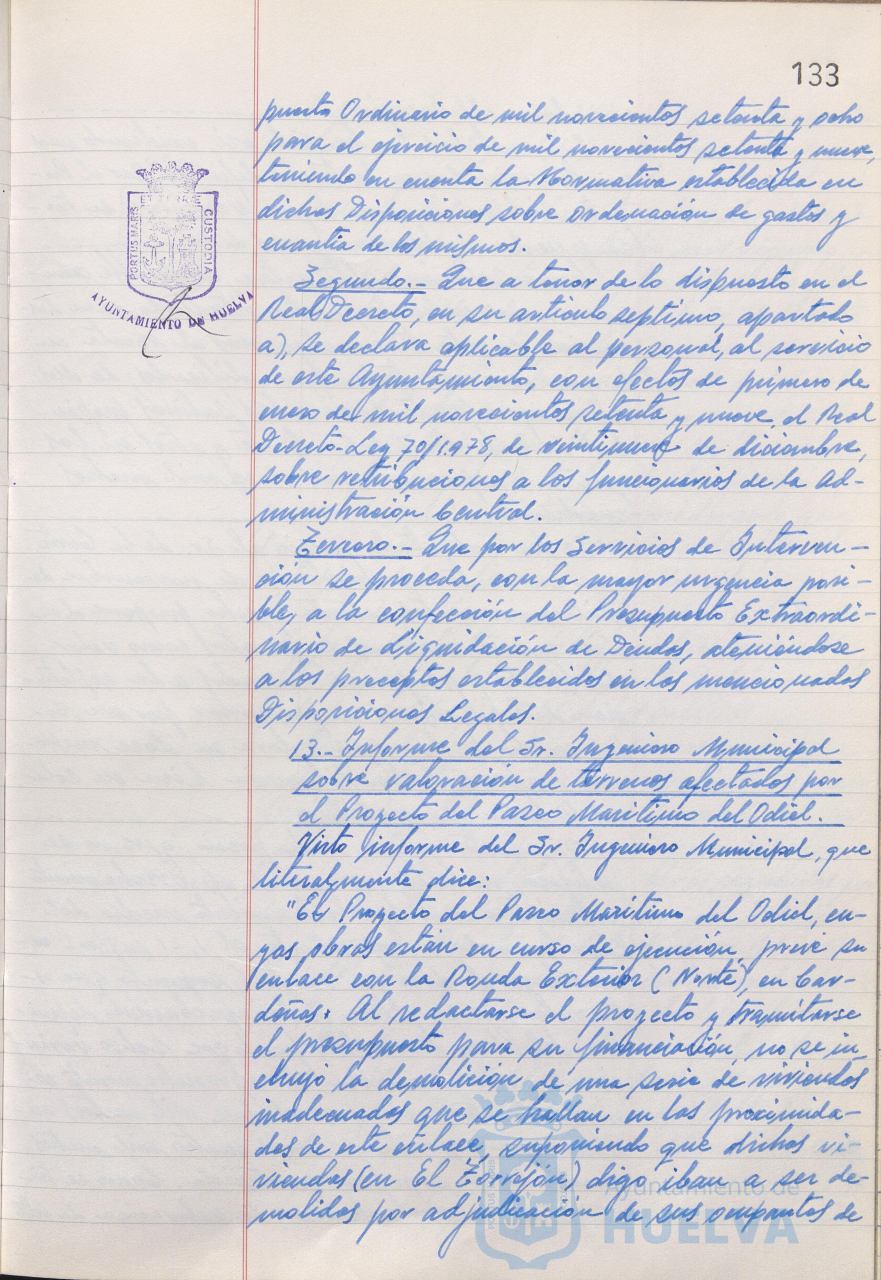 133
puesto Ordinario de mil novecientos setenta y ocho
para el ejercicio de mil novecientos setenta y nueve,
teniendo en cuenta la Normativa establecida en
dichas Disposiciones sobre ordenación de gastos y
cuantía de los mismos.
Segundo.- Que a tenor de lo dispuesto en el
Real Decreto, en su artículo septimo, apartado
a), se declara aplicable al personal, al servicio
de este Ayuntamiento, con efectos de primero de
enero de mil novecientos setenta y nueve, el Real
Decreto-Ley 70/1.978, de veintinueve de diciembre,
sobre retribuciones a los funcionarios de la Ad-
ministración Central.
Tercero.- Que por los Servicios de Interven-
ción se proceda, con la mayor urgencia posi-
ble, a la confección del Presupuesto Extraordi-
nario de Liquidación de Deudas, ateniéndose
a los preceptos establecidos en las mencionadas
Disposiciones Legales.
13.- Informe del Sr. Ingeniero Municipal
sobre valoración de terrenos afectados por
el Proyecto del Paseo Marítimo del Odiel.
Visto informe del Sr. Ingeniero Municipal, que
literalmente dice:
"El Proyecto del Paseo Marítimo del Odiel, cu-
yas obras están en curso de ejecución, prevé su
enlace con la Ronda Exterior (Norte), en Car-
deñas. Al redactarse el proyecto y tramitarse
el presupuesto para su financiación, no se in
cluyó la demolición de una serie de viviendas
inadecuadas que se hallan en las proximida-
des de este enlace, suponiendo que dichas vi-
viendas (en El Torrejón) digo iban a ser de-
molidas por adjudicación de sus ocupantes de
PORTUS MARIS
ET TERRAE
CUSTODIA
AYUNTAMIENTO DE HUELVA
Ayuntamiento de
HUELVA